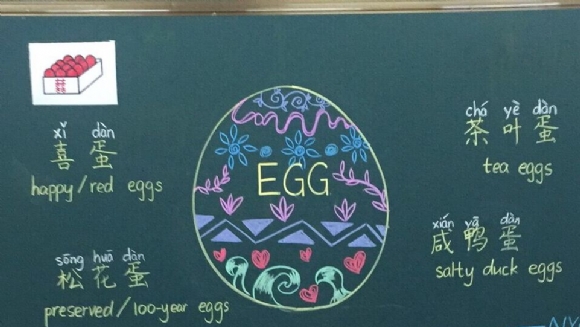 xǐ dàn
喜蛋
happy/red eggs
sōng huā dàn
松花蛋
preserved/100-year eggs
EGG
chá yè dàn
茶叶蛋
tea eggs
xián yā dàn
咸鸭蛋
salty duck eggs